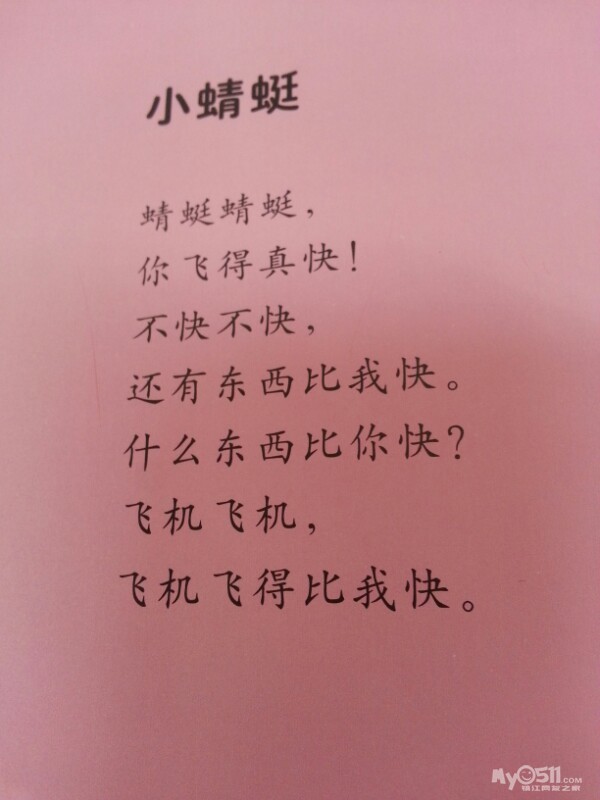 小蜻蜓
蜻蜓蜻蜓，
你飞得真快！
不快不快，
还有东西比我快。
什么东西比你快？
飞机飞机，
飞机飞得比我快。
My0511.COM
镇江网友之家